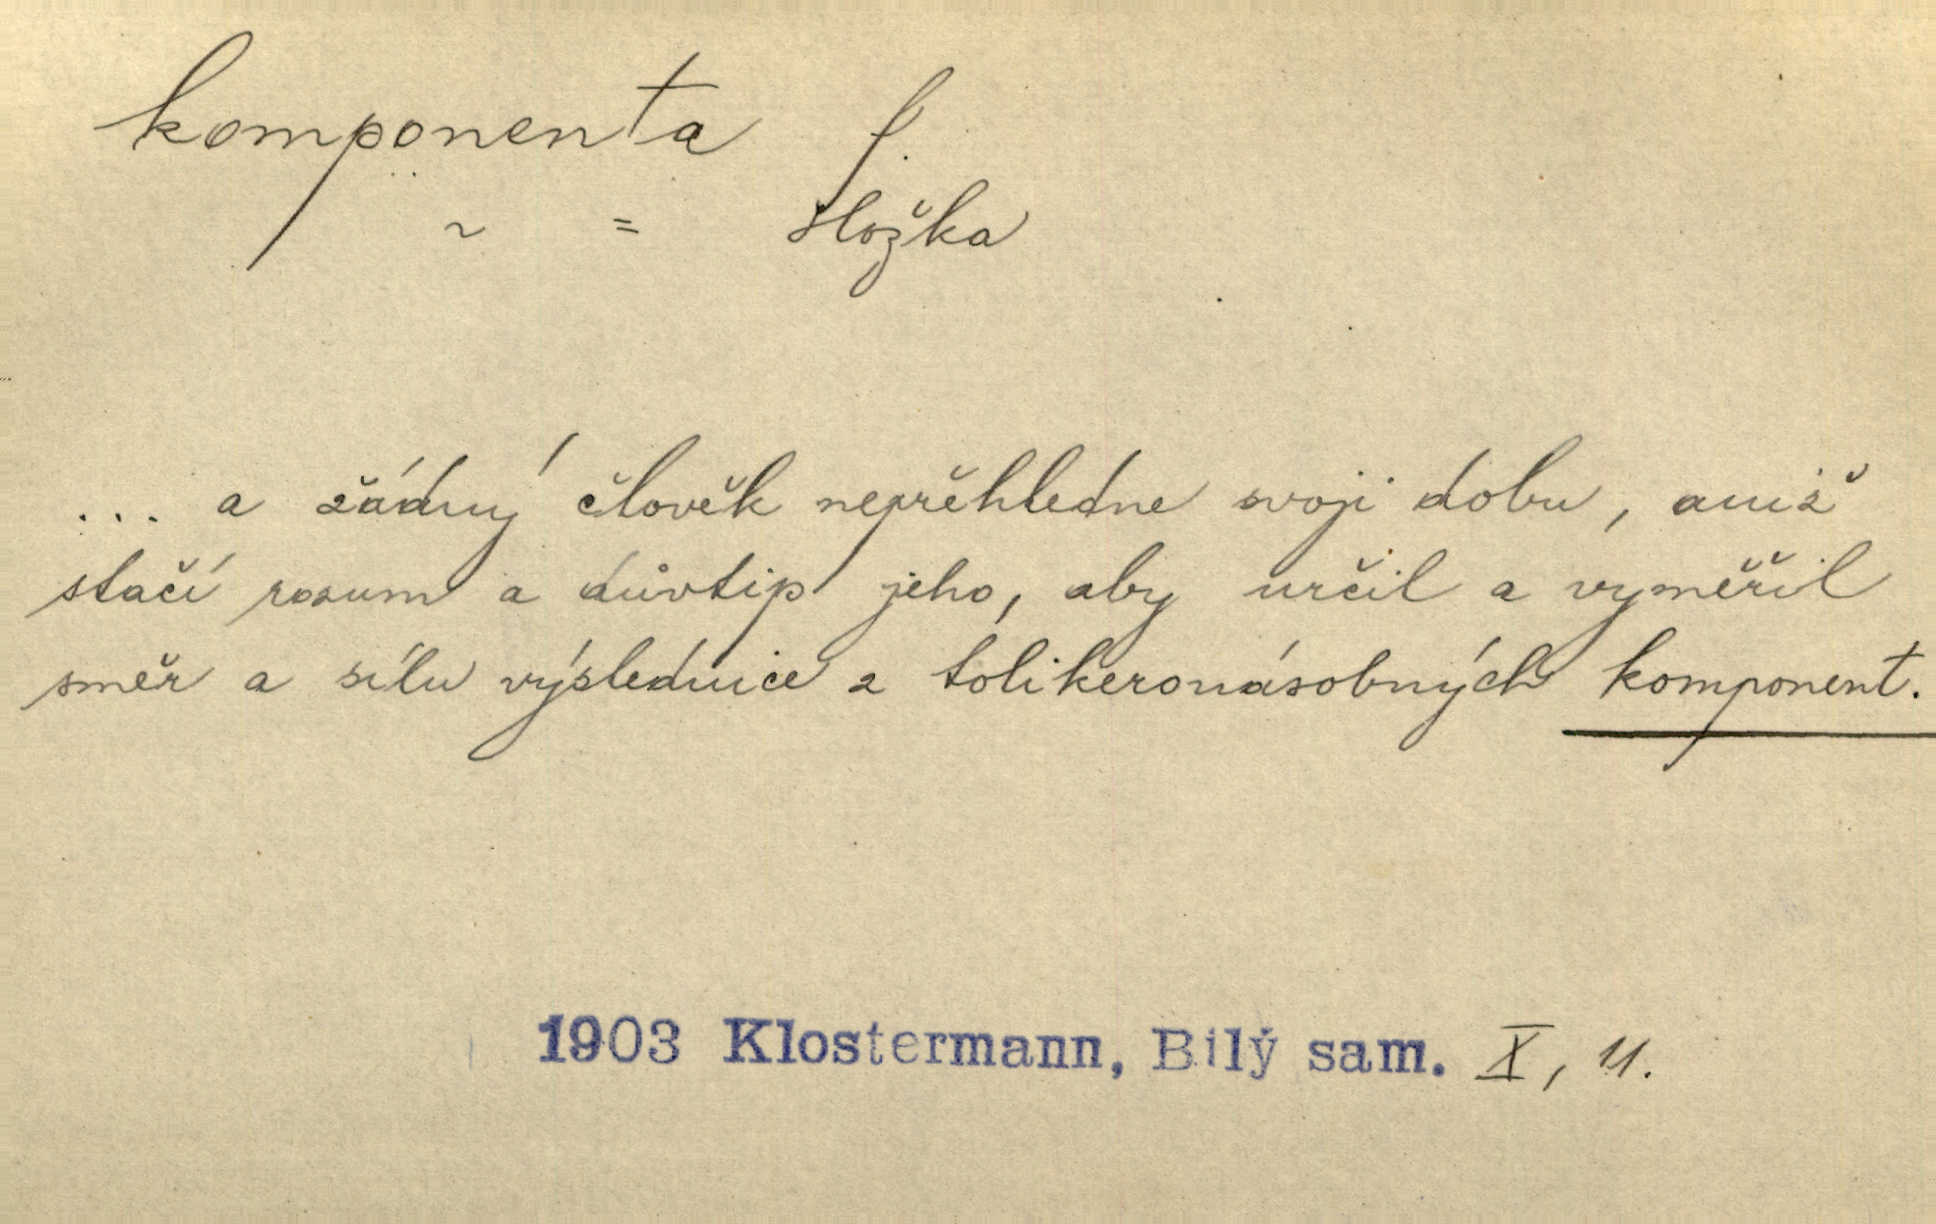 komponenta f.
~ = složka
... a žádný člověk nepřehledne svoji dobu, aniž
stačí rozum a důvtip jeho, aby určil a vyměřil
směr a sílu výslednice z tolikeronásobných komponent.
1903 Klostermann, Bílý sam. X, 11.